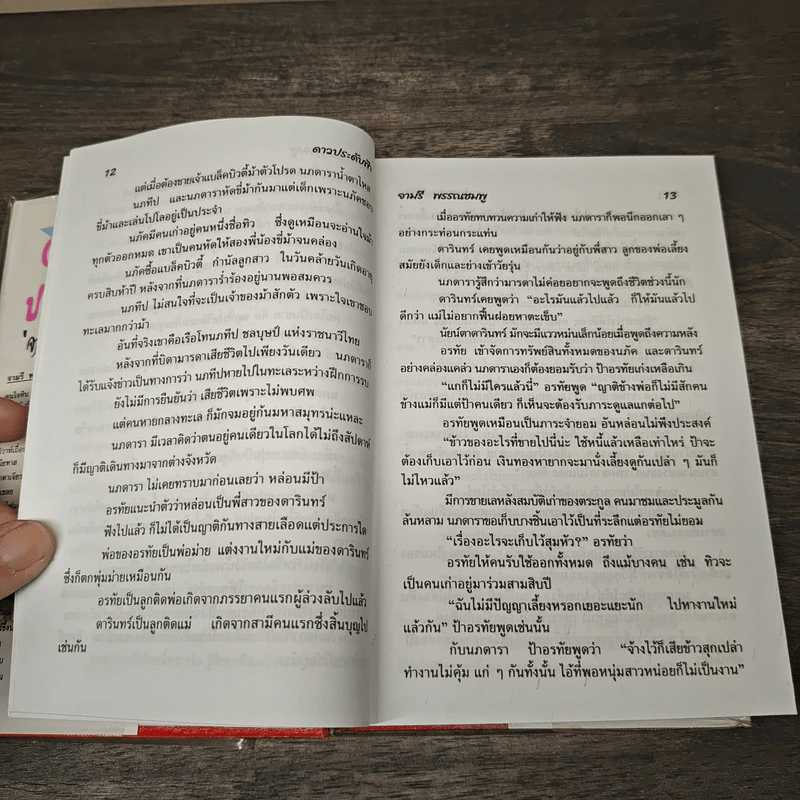 12
ดาวประดับฟ้า
แต่เมื่อต้องขายเจ้าแบล็คบิวตี้ม้าตัวโปรด นภดาราน้ำตาไหล
นภทีป และนภดาราหัดขี่ม้ากันมาแต่เด็กเพราะนภัคชอบ
ขี่ม้าและเล่นโปโลอยู่เป็นประจำ
นภัคมีคนเก่าอยู่คนหนึ่งชื่อทิว ซึ่งดูเหมือนจะอ่านใจม้า
ทุกตัวออกหมด เขาเป็นคนหัดให้สองพี่น้องขี่ม้าจนคล่อง
นภัคซื้อแบล็คบิวตี้ กำนัลลูกสาว ในวันคล้ายวันเกิดอายุ
ครบสิบห้าปี หลังจากที่นภดาราร่ำร้องอยู่นานพอสมควร
นภทีป ไม่สนใจที่จะเป็นเจ้าของม้าสักตัว เพราะใจเขาชอบ
ทะเลมากกว่าม้า
อันที่จริงเขาคือเรือโทนภทีป ชลบุษป์ แห่งราชนาวีไทย
หลังจากที่บิดามารดาเสียชีวิตไปเพียงวันเดียว นภดาราก็
ได้รับแจ้งข่าวเป็นทางการว่า นภทีปหายไปในทะเลระหว่างฝึกการรบ
ยังไม่มีการยืนยันว่า เสียชีวิตเพราะไม่พบศพ
แต่คนหายกลางทะเล ก็มักจมอยู่ก้นมหาสมุทรน่ะแหละ
นภดารา มีเวลาคิดว่าตนอยู่คนเดียวในโลกได้ไม่ถึงสัปดาห์
ก็มีญาติเดินทางมาจากต่างจังหวัด
นภดารา ไม่เคยทราบมาก่อนเลยว่า หล่อนมีป้า
อรทัยแนะนำตัวว่าหล่อนเป็นพี่สาวของดารินทร์
ฟังไปแล้ว ก็ไม่ได้เป็นญาติกันทางสายเลือดแต่ประการใด
พ่อของอรทัยเป็นพ่อม่าย แต่งงานใหม่กับแม่ของดารินทร์
ซึ่งก็ตกพุ่มม่ายเหมือนกัน
อรทัยเป็นลูกติดพ่อเกิดจากภรรยาคนแรกผู้ล่วงลับไปแล้ว
ดารินทร์เป็นลูกติดแม่ เกิดจากสามีคนแรกซึ่งสิ้นบุญไป
เช่นกัน
จามรี พรรณชมพู
13
เมื่ออรทัยทบทวนความเก่าให้ฟัง นภดาราก็พอนึกออกเลา ๆ
อย่างกระท่อนกระแท่น
ดารินทร์ เคยพูดเหมือนกันว่าอยู่กับพี่สาว ลูกของพ่อเลี้ยง
สมัยยังเด็กและย่างเข้าวัยรุ่น
นภดารารู้สึกว่ามารดาไม่ค่อยอยากจะพูดถึงชีวิตช่วงนี้นัก
ดารินทร์เคยพูดว่า “อะไรมันแล้วไปแล้ว ก็ให้มันแล้วไป
ดีกว่า แม่ไม่อยากฟื้นฝอยหาตะเข็บ”
นัยน์ตาดารินทร์ มักจะมีแววหม่นเล็กน้อยเมื่อพูดถึงความหลัง
อรทัย เข้าจัดการทรัพย์สินทั้งหมดของนภัค และดารินทร์
อย่างคล่องแคล่ว นภดาราเองก็ต้องยอมรับว่า ป้าอรทัยเก่งเหลือเกิน
“แกก็ไม่มีใครแล้วนี่” อรทัยพูด “ญาติข้างพ่อก็ไม่มีสักคน
ข้างแม่ก็มีแต่ป้าคนเดียว ก็เห็นจะต้องรับภาระดูแลแกต่อไป”
อรทัยพูดเหมือนเป็นภาระจำยอม อันหล่อนไม่พึงประสงค์
“ข้าวของอะไรที่ขายไปนี่น่ะ ใช้หนี้แล้วเหลือเท่าไหร่ ป้าจะ
ต้องเก็บเอาไว้ก่อน เงินทองหายากจะมานั่งเลี้ยงดูกันเปล่า ๆ มันก็
ไม่ไหวแล้ว”
มีการขายเลหลังสมบัติเก่าของตระกูล คนมาชมและประมูลกัน
ล้นหลาม นภดาราขอเก็บบางชิ้นเอาไว้เป็นที่ระลึกแต่อรทัยไม่ยอม
“เรื่องอะไรจะเก็บไว้สุมหัว?” อรทัยว่า
อรทัยให้คนรับใช้ออกทั้งหมด ถึงแม้บางคน เช่น ทิวจะ
เป็นคนเก่าอยู่มาร่วมสามสิบปี
“ฉันไม่มีปัญญาเลี้ยงหรอกเยอะแยะนัก ไปหางานใหม่
แล้วกัน” ป้าอรทัยพูดเช่นนั้น
กับนภดารา ป้าอรทัยพูดว่า “จ้างไว้ก็เสียข้าวสุกเปล่า
ทำงานไม่คุ้ม แก่ ๆ กันทั้งนั้น ไอ้ที่พอหนุ่มสาวหน่อยก็ไม่เป็นงาน”